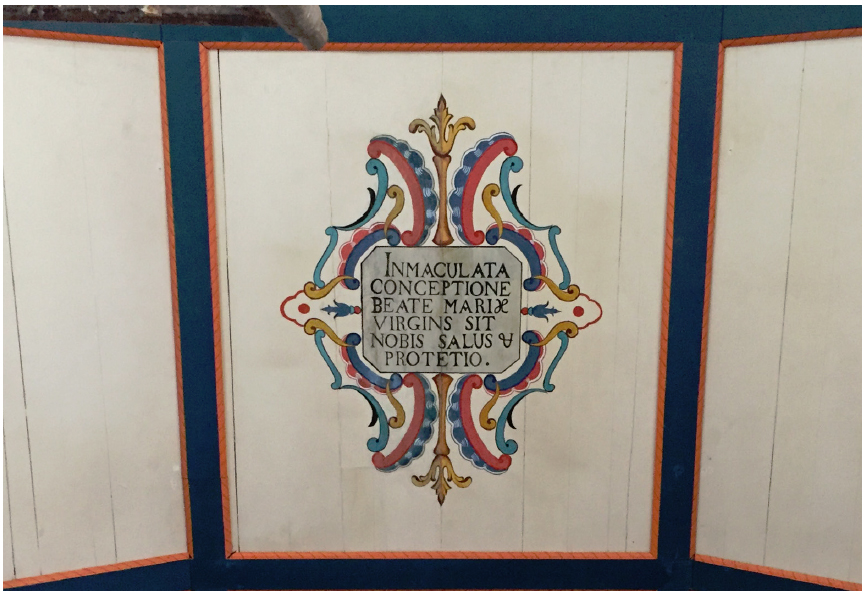 INMACULATA
CONCEPTIONE
BEATE MARIÆ
VIRGINS SIT
NOBIS SALUS &
PROTETIO.